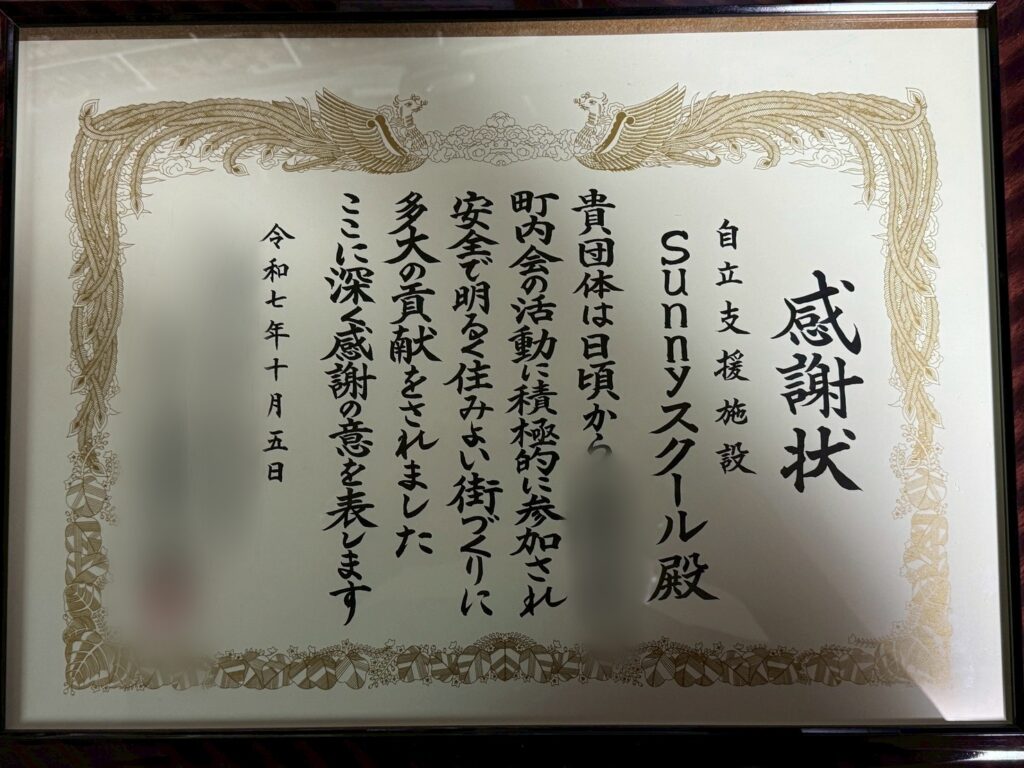 感謝状
自立支援施設
Sunnyスクール殿
貴団体は日頃から
町内会の活動に積極的に参加され
安全で明るく住みよい街づくりに
多大の貢献をされました
ここに深く感謝の意を表します
令和七年十月五日